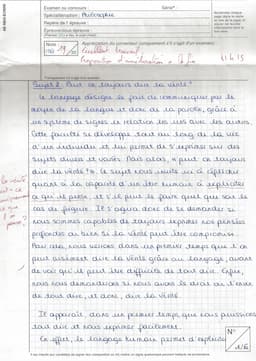 Examen ou concours :
Série* :
Spécialité/option : Philosophie
Repère de l'épreuve :
Epreuve/sous-épreuve :
Note :
19
Appréciation du correcteur (uniquement s'il s'agit d'un examen) :
Excellent travail
Sujet 2 : Peut-on toujours dire la vérité ?
Le langage désigne le fait de communiquer par le
moyen de la langue et donc de la parole, grâce à
un système de signes en relation les uns avec les autres.
Cette faculté se développe tout au long de la vie
d'un individu et lui permet de s'exprimer sur des
sujets divers et variés. Mais alors, "peut-on toujours
dire la vérité ?". Le sujet nous invite à réfléchir
quant à la capacité d'un être humain à expliciter
ce qu'il pense, et s'il peut le faire quel que soit le
cas de figure. Il s'agira donc de se demander si
nous sommes capables de toujours exprimer nos pensées
profondes ou bien si la vérité peut être compromise.
Pour cela, nous verrons dans un premier temps que l'on
peut aisément dire la vérité grâce au langage, avant
de voir qu'il peut être difficile de tout dire. Enfin,
nous nous demanderons si nous avons le droit ou l'envie
de tout dire, et donc, dire la vérité.
Il apparaît, dans un premier temps, que nous puissions
tout dire et nous exprimer facilement.
En effet, le langage humain permet d'expliciter
N°
1/6